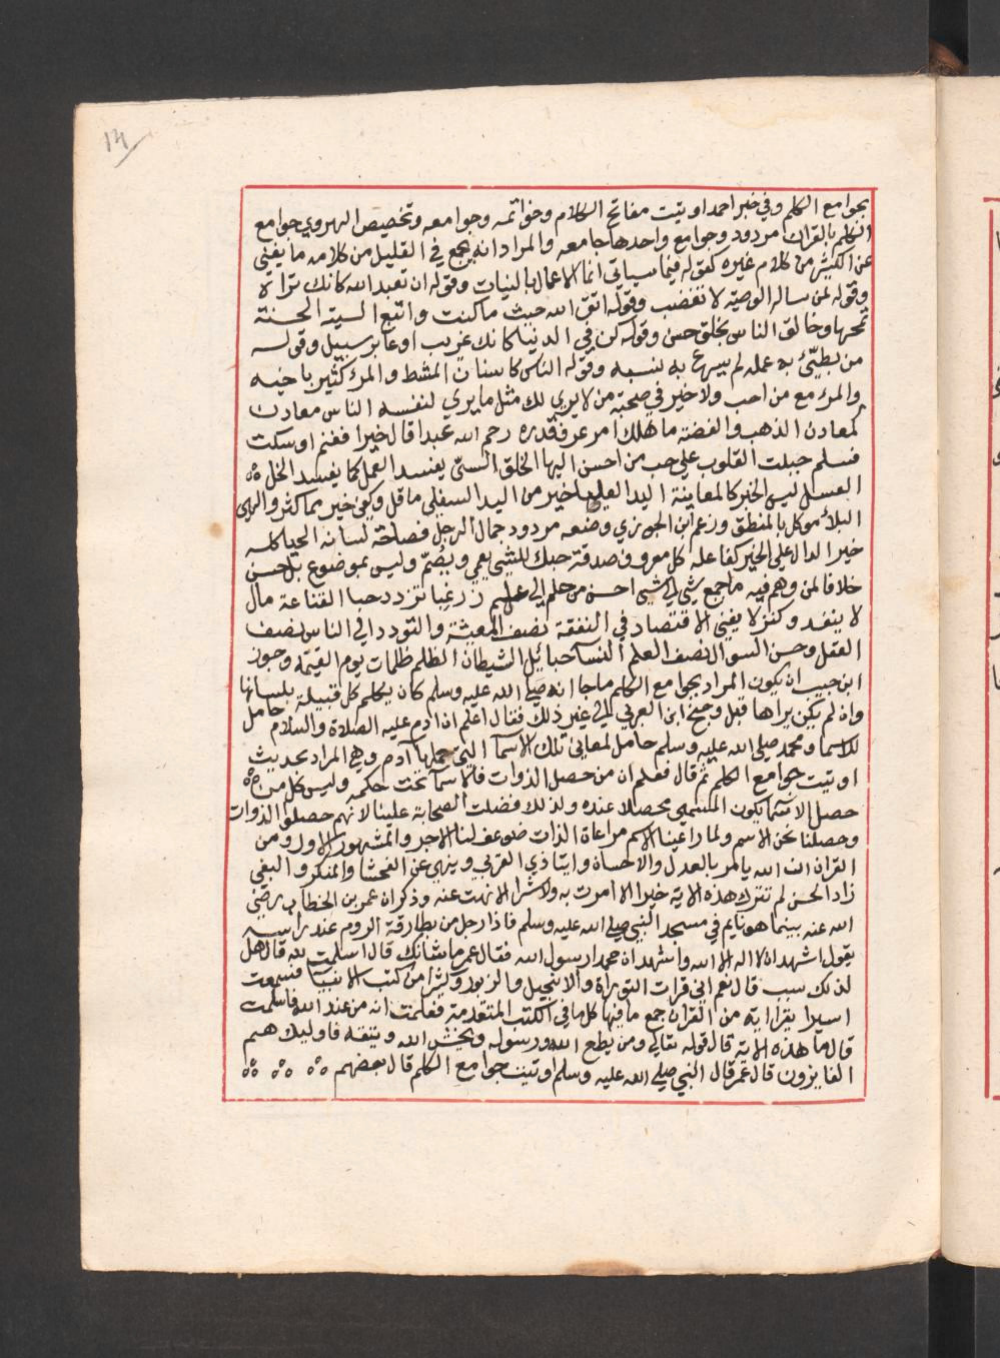 14
بجوامع الكلم وفي خبر احمد اوتيت مفاتح الكلام وخواتمه وجوامعه وتخصيص الهروي جوامع
الكلم بالقران مردود وجوامع واحدها جامعه والمراد انه يجمع في القليل من كلامه ما يغني
عن الكثير من كلام غيره كقوله فيما سياتي انما الاعمال بالنيات وقوله ان تعبد الله كانك تراه
وقوله لمن ساله الوصية لا تغضب وقوله اتق الله حيث ما كنت واتبع السية الحسنة
تمحها وخالق الناس بخلق حسن وقوله كن في الدنيا كانك غريب او عابر سبيل وقوله
من بطيّئ به عمله لم يسرع به نسبه وقوله الناس كاسنان المشط والمرء كثير باخيه
والمرء مع من احب ولا خير في صحبة من لا يري لك مثل ما يري لنفسه الناس معادن
كمعادن الذهب والفضة ما هلك امر عرف قدره رحم الله عبدا قال خيرا فغنم او سكت
فسلم جبلت القلوب علي حب من احسن اليها الخلق السئ يفسد العمل كما يفسد الخل
العسل ليس الخبر كالمعاينة اليد العليا خير من اليد السفلي ما قل وكفي خير مما كثر والهى
البلاء موكل بالمنطق وزعم ابن الجوزي وضعه مردود جمال الرجل فصاحة لسانه الحيا كله
خير الدال علي الخير كفاعله كل معروف صدقة حبك للشي يعمي ويصم وليس بموضوع بل حسن
خلافا لمن وهم فيه ما جمع شي الي شي احسن من حلم الي علم زر غبا تزدد حبا القناعة مال
لا ينفد وكنز لا يفني الاقتصاد في النفقة نصف المعيشة والتودد الي الناس نصف
العقل وحسن السوال نصف العلم النسا حبائل الشيطان الظلم ظلمات يوم القيمة وجوز
ابن حبيب ان يكون المراد بجوامع الكلم ما جا انه صلي الله عليه وسلم كان يكلم كل قبيلة بلسانها
وان لم يكن يراها قبل وجنح ابن العربي الي غير ذلك فقال اعلم ان ادم عليه الصلاة والسلام حامل
للاسما ومحمد صلي الله عليه وسلم حامل لمعاني تلك الاسما التي حملها آدم وهي المراد بحديث
اوتيت جوامع الكلم ثم قال فعلم ان من حصل الذوات فالاسما تحت حكمه وليس كل من
حصل الاسما يكون المسمي محصلا عنده ولذلك فضلت الصحابة علينا لانهم حصلوا الذوات
وحصلنا نحن الاسم ولما راعينا الاسم مراعاة الذات ضوعف لنا الاجر والمشهور الاول ومن
القران ان الله يامر بالعدل والاحسان وايتا ذي القربي وينهي عن الفحشا والمنكر والبغي
زاد الحسن لم تترك هذه الاية خيرا الا امرت به ولا شرا الا نهت عنه وذكر ان عمر بن الخطاب رضي
الله عنه بينما هو نايم في مسجد النبي صلي الله عليه وسلم فاذا رجل من بطارقة الروم عند راسه
يقول اشهد ان لا اله الا الله واشهد ان محمدا رسول الله فقال عمر ما شانك قال اسلمت لله قال هل
لذلك سبب قال نعم اني قرات التوراة والانجيل والزبور وكثيرا من كتب الانبيا فسمعت
اسيرا يقرا اية من القران جمع ما فيها كل ما في الكتب المتقدمة فعلمت انه من عند الله فاسلمت
قال ما هذه الاية قال قوله تعالي ومن يطع الله ورسوله ويخش الله ويتقه فاوليك هم
الفايزون قال عمر قال النبي صلي الله عليه وسلم اوتيت جوامع الكلم قال بعضهم